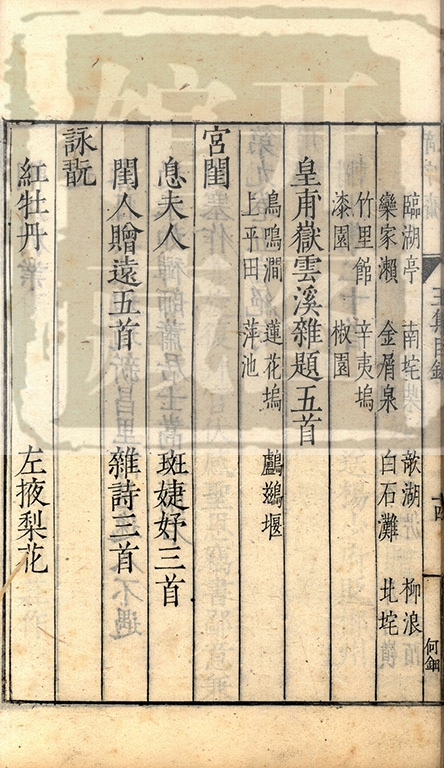 臨湖亭 南垞 欹湖 柳浪
欒家瀨 金屑泉 白石灘 北垞
竹里館 辛夷塢
漆園 椒園
皇甫嶽雲溪雜題五首
鳥鳴澗 蓮花塢 鸕鷀堰
上平田 萍池
宮閨
息夫人 班婕妤三首
閨人贈遠五首 雜詩三首
詠翫
紅牡丹 左掖梨花